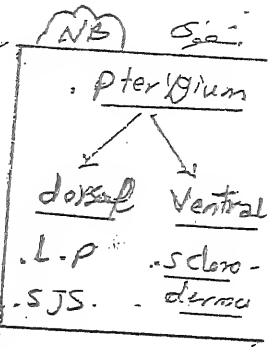 NB
. Pterygium
dorsal Ventral
. L.P . sclero-
. SJS. . derma